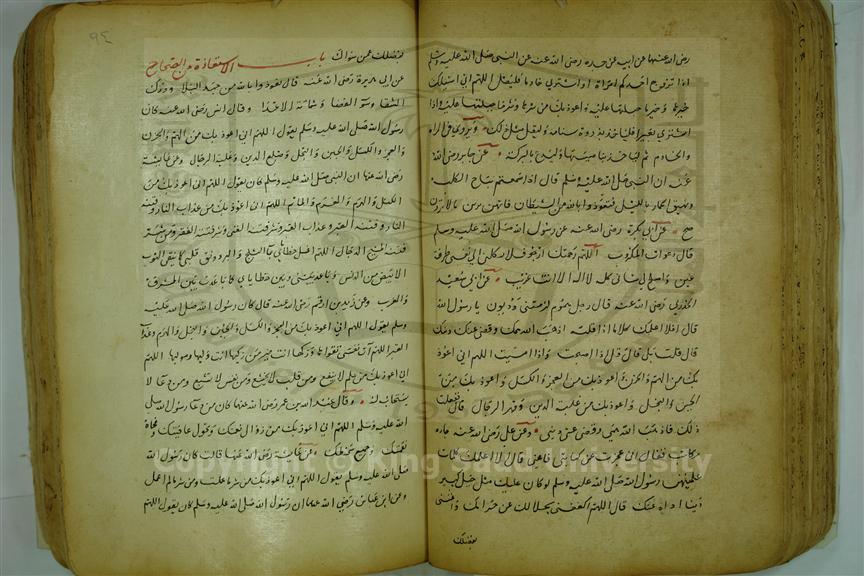 رضى الله عنهما عن ابيه عن جده رضى الله عنه عن النبى صلى الله عليه وسلم
اذا تزوج احدكم امراة او اشترى خادما فليقل اللهم انى اسئلك
خيرها وخير ما جبلتها عليه واعوذ بك من شرها وشر ما جبلتها عليه واذا
اشترى بعيرا فلياخذ بذروة سنامه وليقل مثل ذلك ويروى فى المراة
والخادم ثم لياخذ بناصيتها وليدع بالبركة عن جابر رضى الله
عنه ان النبى صلى الله عليه وسلم قال اذا سمعتم نباح الكلب
ونهيق الحمار بالليل فتعوذوا بالله من الشيطان فانهن يرين ما لا ترون
صح عن ابى بكرة رضى الله عنه عن رسول الله صلى الله عليه وسلم
قال دعوات المكروب اللهم رحمتك ارجو فلا تكلنى الى نفسى طرفة
عين واصلح لى شانى كله لا اله الا انت غريب عن ابى سعيد
الخدرى رضى الله عنه قال رجل هموم لزمتنى وديون يا رسول الله
قال افلا اعلمك كلاما اذا قلته اذهب الله همك وقضى عنك دينك
قال قلت بلى قال قل اذا اصبحت واذا امسيت اللهم انى اعوذ
بك من الهم والحزن واعوذ بك من العجز والكسل واعوذ بك من
الجبن والبخل واعوذ بك من غلبة الدين وقهر الرجال قال ففعلت
ذلك فاذهب الله همى وقضى عنى دينى وعن على رضى الله عنه جاءه
مكاتب فقال انى عجزت عن كتابتى فاعنى قال الا اعلمك كلمات
علمنيهن رسول الله صلى الله عليه وسلم لو كان عليك مثل جبل كبير
دينا اداه عنك قال اللهم اكفنى بحلالك عن حرامك واغننى
بفضلك
٩٤
بفضلك عمن سواك باب الاستعاذة من الصحاح
عن ابى هريرة رضى الله عنه قال تعوذوا بالله من جهد البلاء ودرك
الشقا وسوء القضا وشماتة الاعدا وقال انس رضى الله عنه كان
رسول الله صلى الله عليه وسلم يقول اللهم انى اعوذ بك من الهم والحزن
والعجز والكسل والجبن والبخل وضلع الدين وغلبة الرجال وعن عايشة
رضى الله عنها ان النبى صلى الله عليه وسلم كان يقول اللهم انى اعوذ بك من
الكسل والهرم والمغرم والماثم اللهم انى اعوذ بك من عذاب النار وفتنة
النار وفتنة القبر وعذاب القبر وشر فتنة الغنى وشر فتنة الفقر ومن شر
فتنة المسيح الدجال اللهم اغسل خطاياى بماء الثلج والبرد ونق قلبى كما ينقى الثوب
الابيض من الدنس وباعد بينى وبين خطاياى كما باعدت بين المشرق
والمغرب وعن زيد بن ارقم رضى الله عنه قال كان رسول الله صلى الله عليه
وسلم يقول اللهم انى اعوذ بك من العجز والكسل والجبن والبخل والهرم وعذاب
القبر اللهم آت نفسى تقواها وزكها انت خير من زكها انت وليها ومولها اللهم
انى اعوذ بك من علم لا ينفع ومن قلب لا يخشع ومن نفس لا تشبع ومن دعا لا
يستجاب له وقال عبد الله بن عمر رضى الله عنهما كان من دعا رسول الله صلى
الله عليه وسلم اللهم انى اعوذ بك من زوال نعمتك وتحول عافيتك وفجاة
نقمتك وجميع سخطك عن عايشة رضى الله عنها قالت كان رسول الله
صلى الله عليه وسلم يقول اللهم انى اعوذ بك من شر ما عملت ومن شر ما لم اعمل
وعن ابن عباس رضى الله عنهما ان رسول الله صلى الله عليه وسلم كان يقول اللهم
Copyright © King Saud University